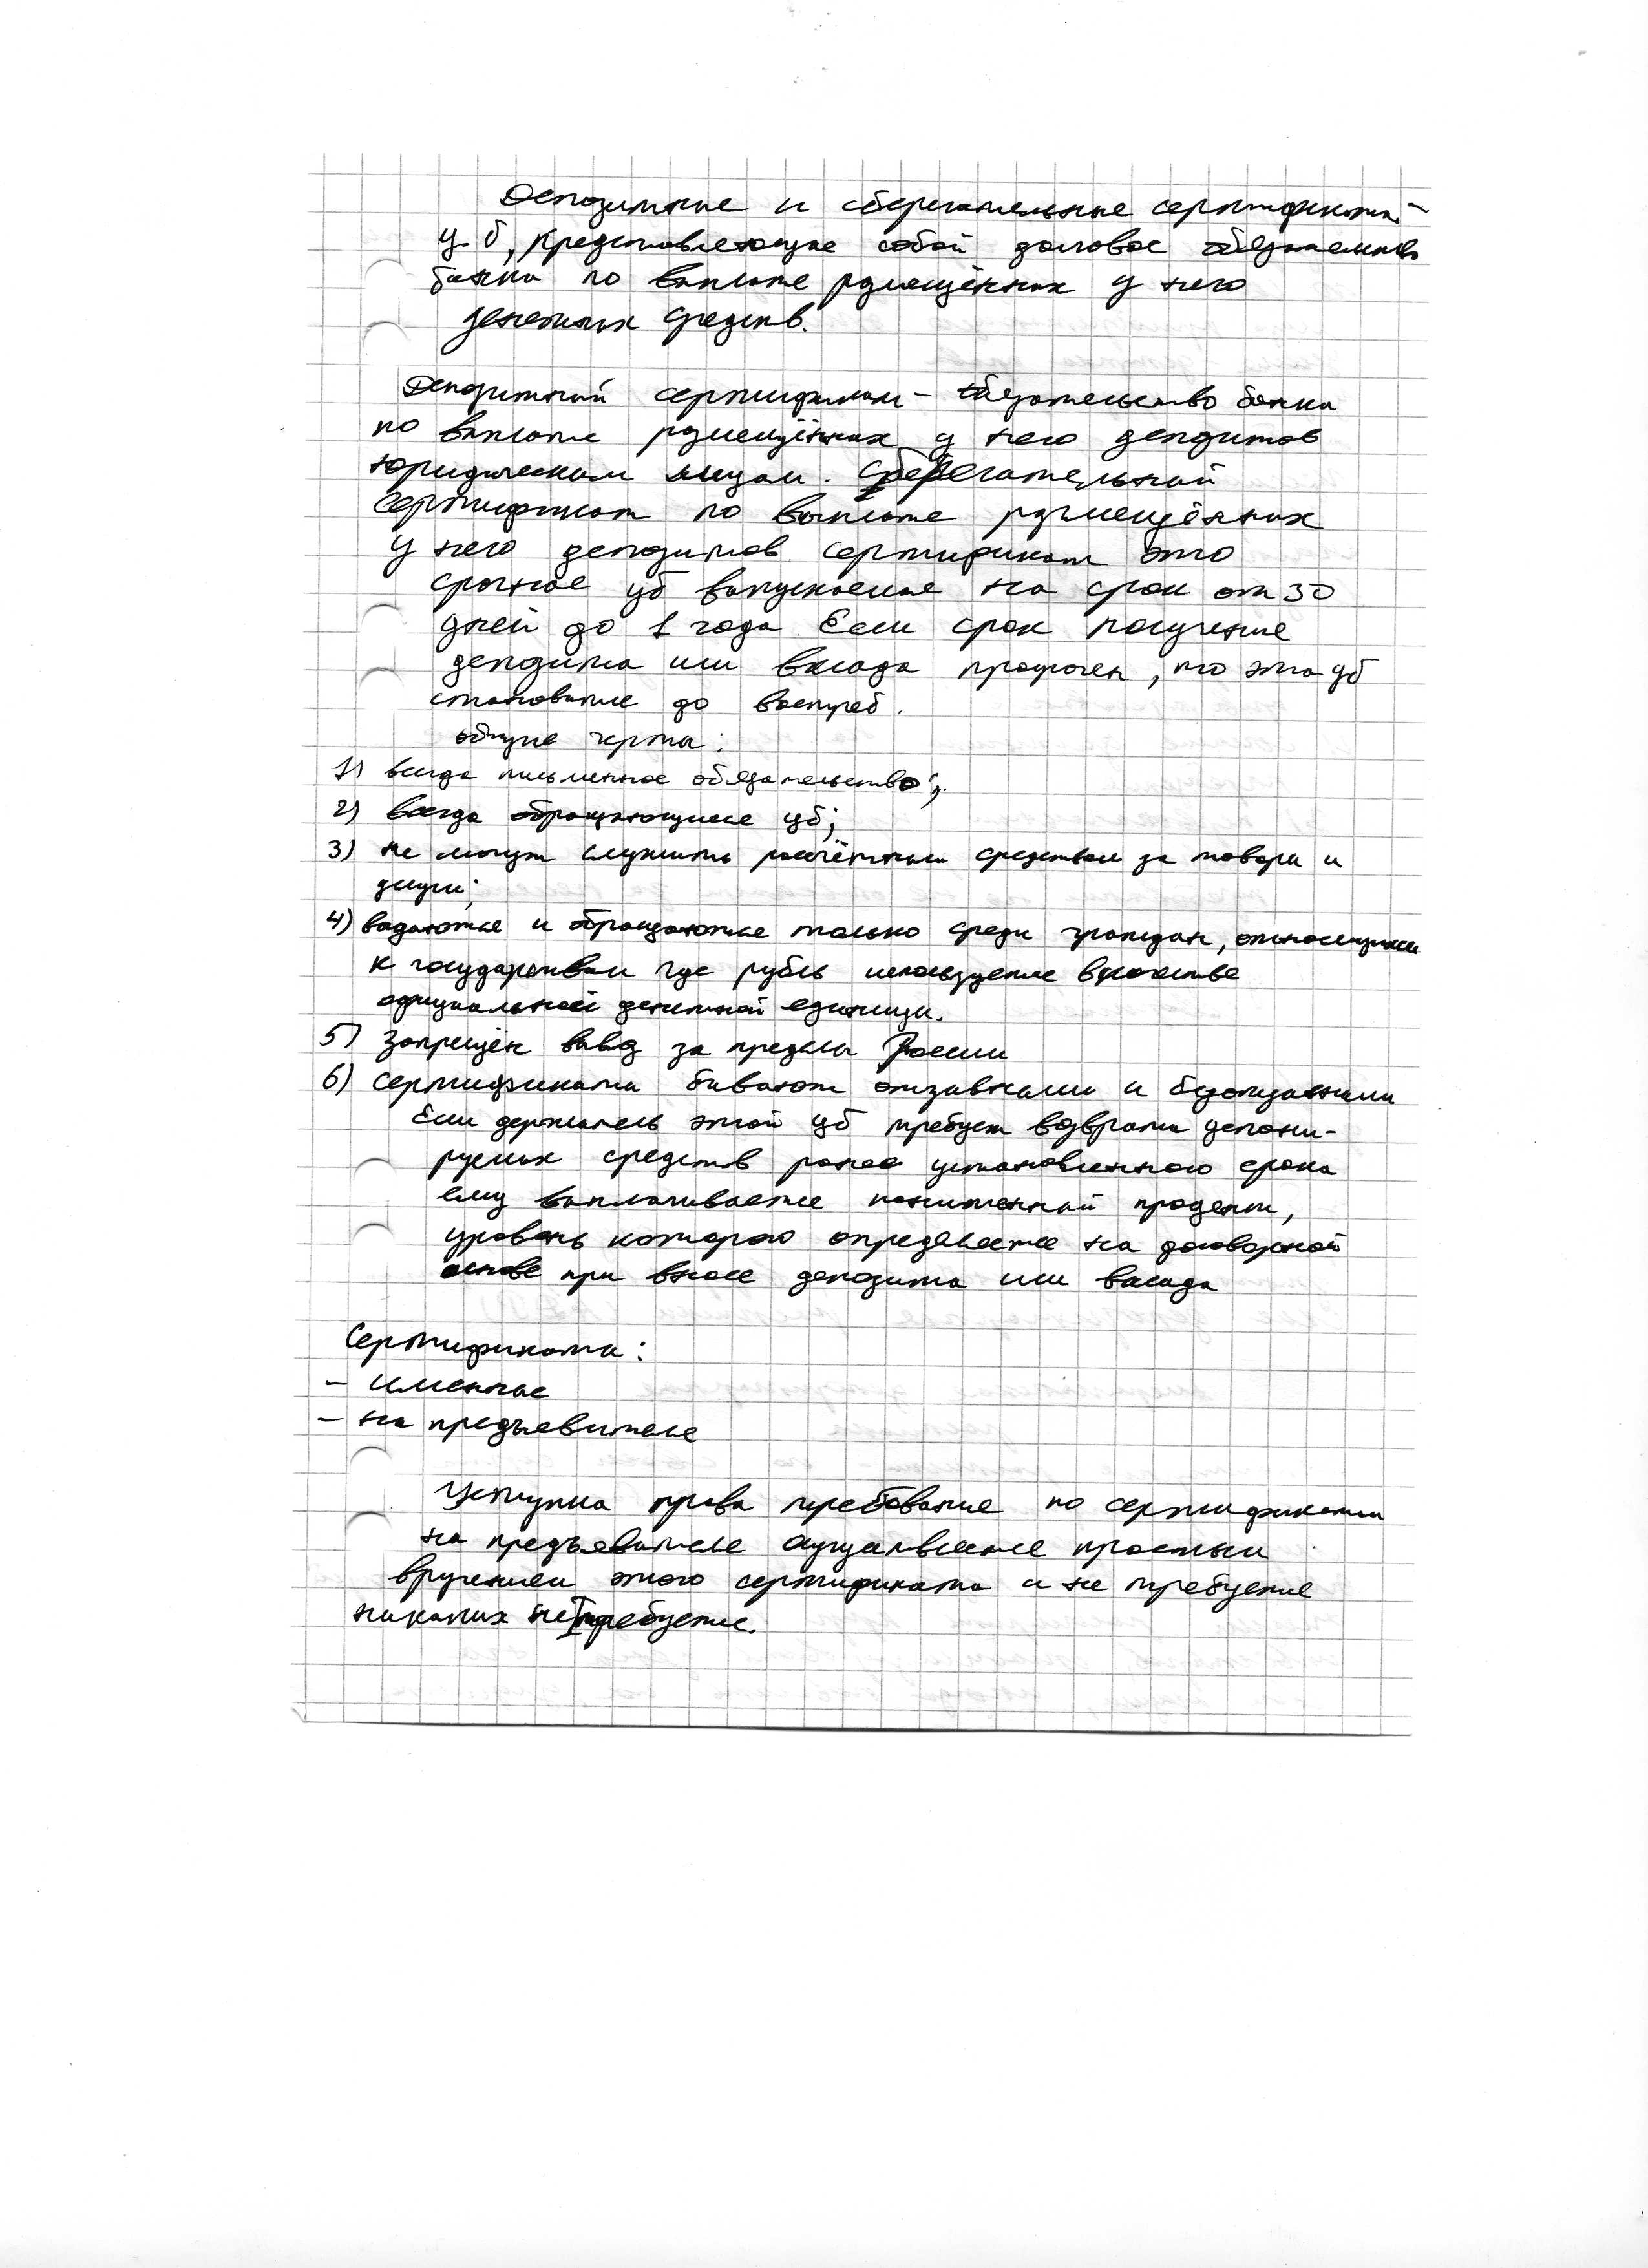 Депозитные и сберегательные сертификаты -
ц.б, представляющие собой долговое обязательство
банка по выплате размещённых у него
денежных средств.
Депозитный сертификат - обязательство банка
по выплате размещённых у него депозитов
юридическим лицам. Сберегательный
сертификат по выплате размещённых
у него депозитов сертификат это
срочные цб выпускаемые на срок от 30
дней до 1 года Если срок получения
депозита или вклада просрочен, то эта цб
становится до востреб.
общие черты:
1) всегда письменное обязательство;
2) всегда обращающиеся цб;
3) не могут служить расчётным средством за товары и
услуги;
4) выдаются и обращаются только среди граждан, относящихся
к государствам где рубль используется в качестве
официальной денежной единицы.
5) Запрещён вывоз за пределы России
6) сертификаты бывают отзывными и безотзывными
Если держатель этой цб требует возврата депони-
руемых средств ранее установленного срока
ему выплачивается пониженный процент,
уровень которого определяется на договорной
основе при взносе депозита или вклада
Сертификаты:
- именные
- на предъявителя
Уступка права требования по сертификатам
на предъявителя осуществляется простым
вручением этого сертификата и не требуется
никаких не требуется.